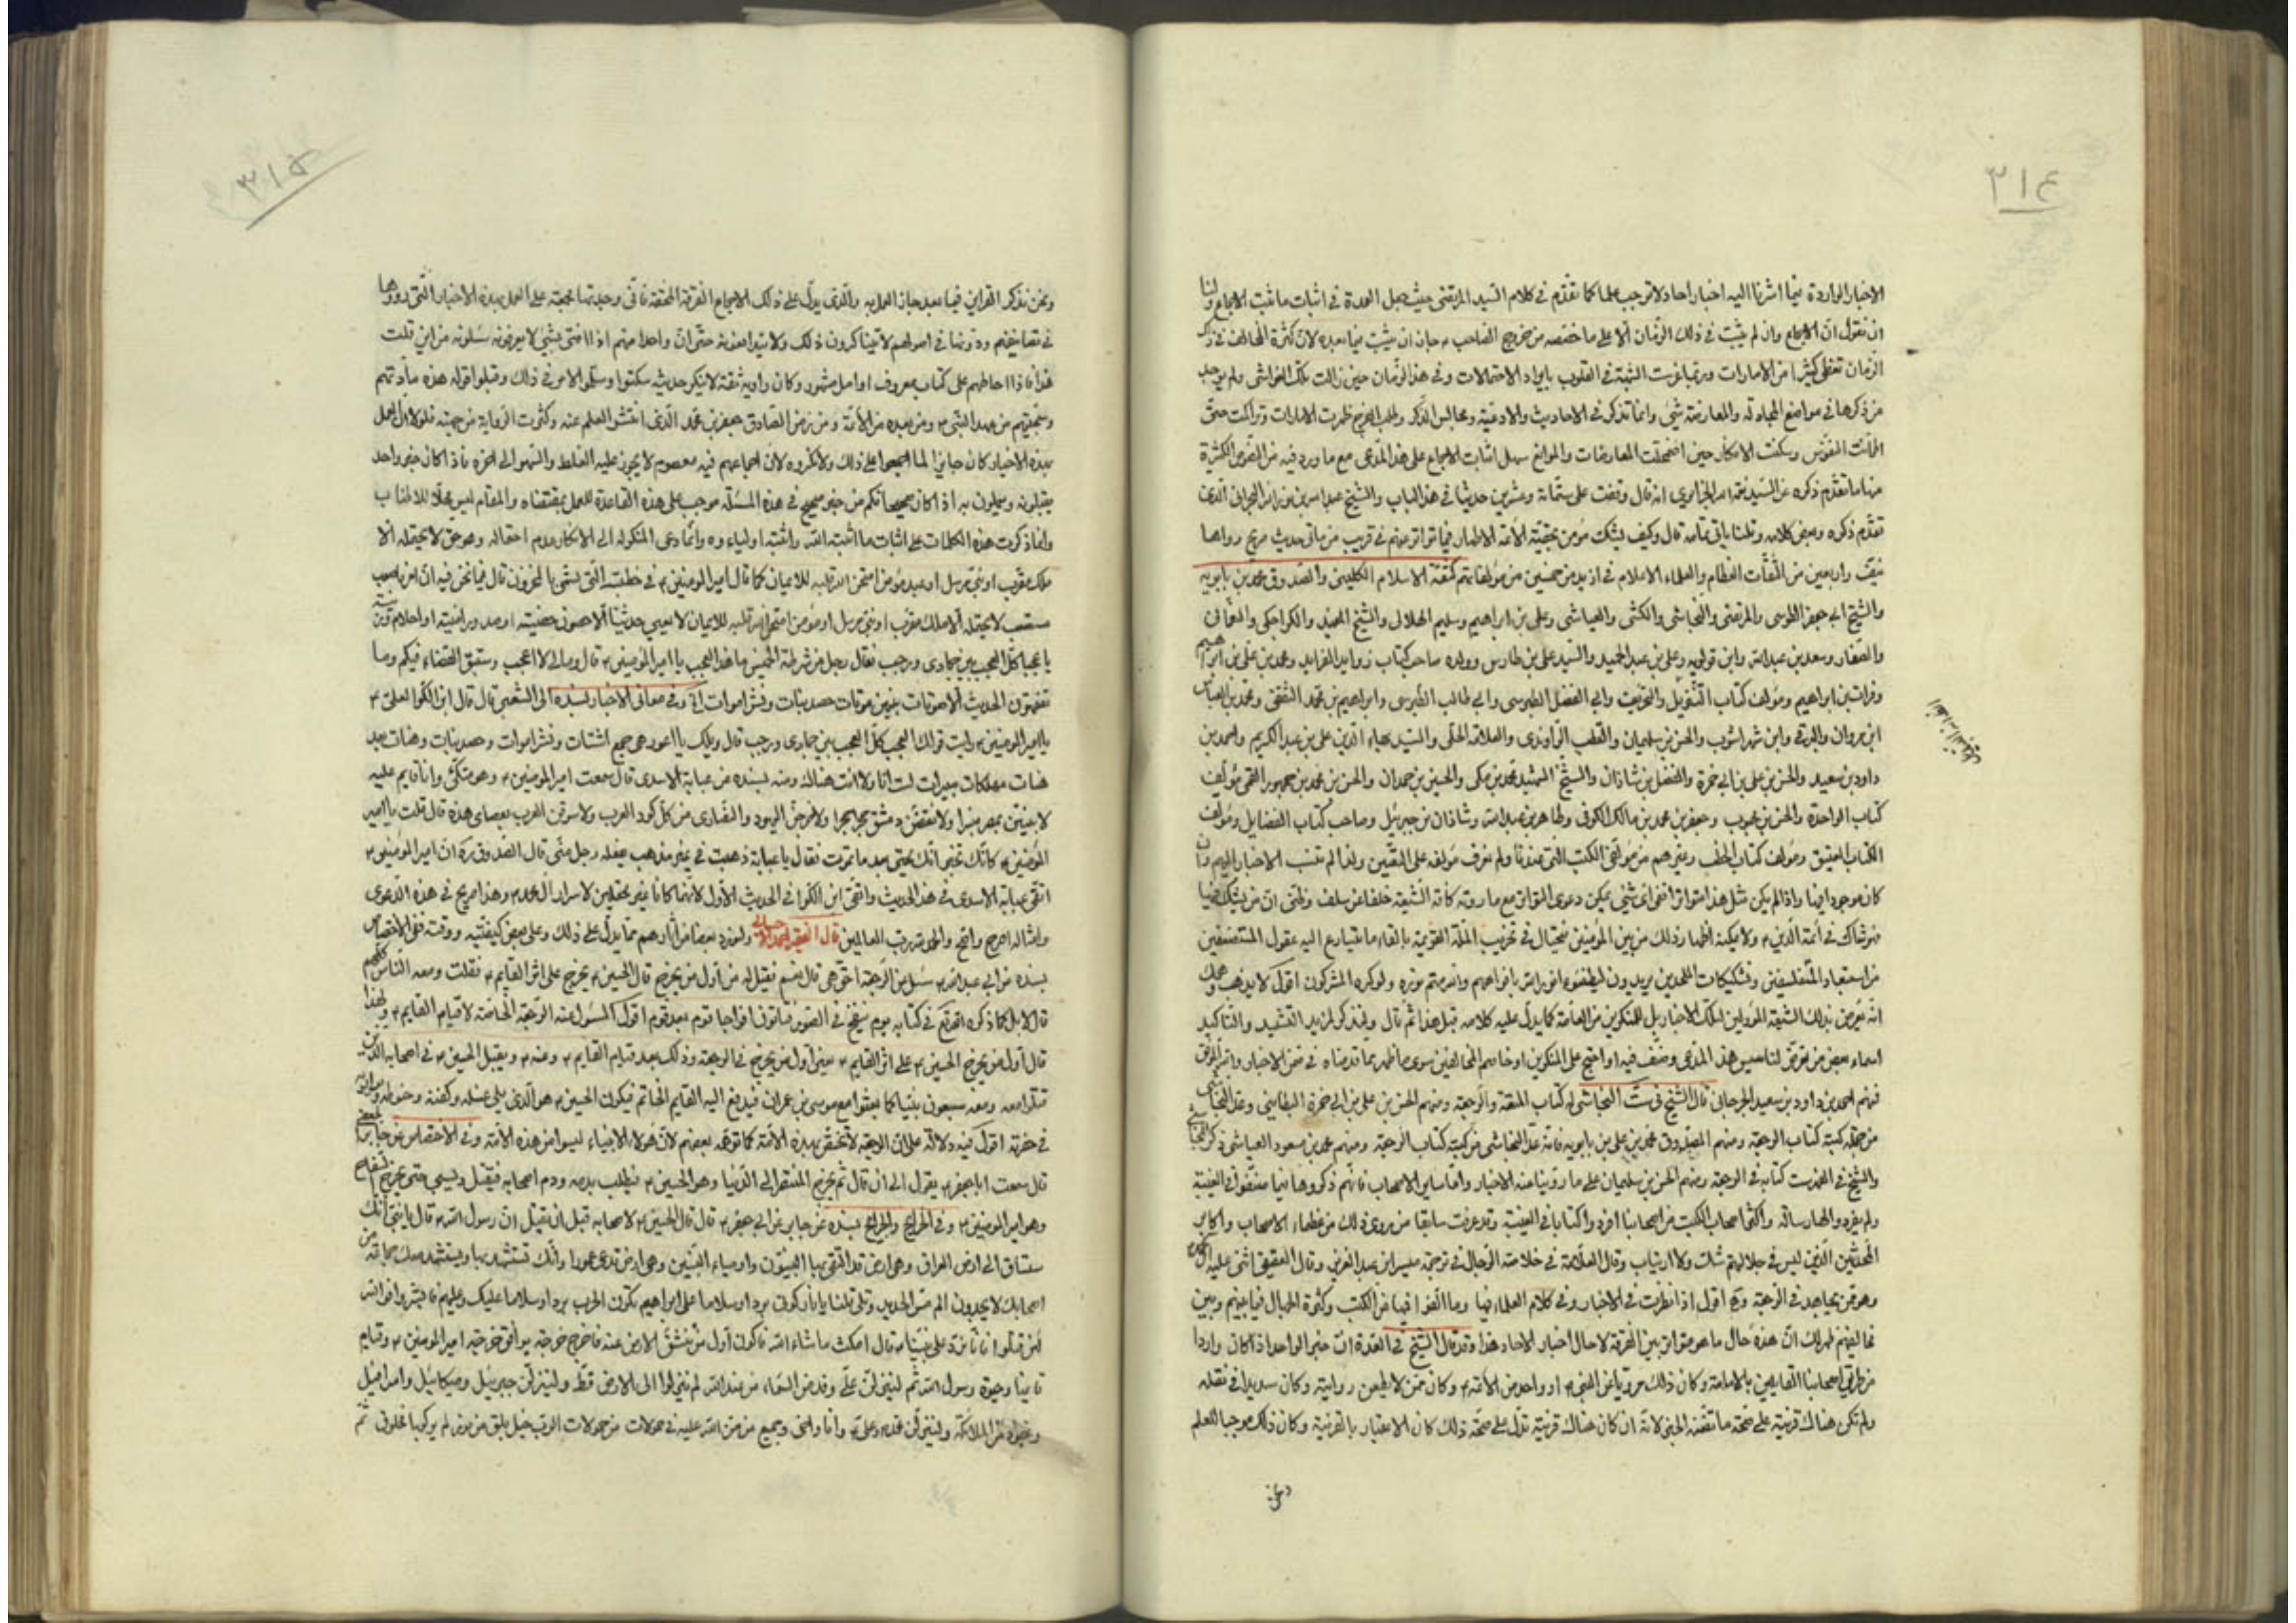 ٣١٤
الاخبار الواردة فيما اشرنا اليه اخبار احاد لا توجب علما كما تقدم في كلام السيد المرتضى حيث جعل العمدة في اثبات ما ثبت الاجماع ولنا
ان نقول ان الاجماع وان لم يثبت في ذلك الزمان الا على ما خصصه من خروج الصاحب ع جاز ان يثبت فيما بعده لان كثرة المخالف في ذلك
الزمان تغطى كثيرا من الامارات وربما غرست الشبهة في القلوب بايراد الاحتمالات وفي هذا الزمان حين زالت تلك الغواشى ولم يوجد
من ذكرها في مواضع المجادلة والمعارضة شئ وانما تذكر في الاحاديث والادعية ومجالس الذكر وطلب الفرج ظهرت الامارات وتراكمت حتى
اطمانت النفوس وسكنت الافكار حين اضمحلت المعارضات والموانع سهل اثبات الاجماع على هذا المدعى مع ما ورد فيه من النصوص الكثيرة
منها ما تقدم ذكره عن السيد نعمة الله الجزايري انه قال وقفت على ستمائة وعشرين حديثا في هذا الباب والشيخ عبد الله بن نور الله البحراني الذي
تقدم ذكره وبعض كلامه وقلنا ياتي تمامه قال وكيف يشك مؤمن بحقية الائمة الاطهار فيما تواتر عنهم في قريب من ماتى حديث صريح رواها
نيف واربعين من الثقات العظام والعلماء الاعلام في ازيد من خمسين من مؤلفاتهم كثقة الاسلام الكليني والصدوق محمد بن بابويه
والشيخ ابي جعفر الطوسى والمرتضى والنجاشى والكشى والعياشى وعلى بن ابراهيم وسليم الهلالى والشيخ المفيد والكراجكى والنعمانى
والصفار وسعد بن عبد الله وابن قولويه وعلى بن عبد الحميد والسيد على بن طاوس وولده صاحب كتاب زوايد الفوايد ومحمد بن على بن ابراهيم
وفرات بن ابراهيم ومؤلف كتاب التنزيل والتحريف وابي الفضل الطبرسى وابي طالب الطبرسى وابراهيم بن محمد الثقفى ومحمد بن العباس
ابن مروان والبرقى وابن شهراشوب والحسن بن سليمان والقطب الراوندى والعلامة الحلى والسيد بهاء الدين على بن عبد الكريم واحمد بن
داود بن سعيد والحسن بن على بن ابي حمزة والفضل بن شاذان والشيخ الشهيد محمد بن مكى والحسين بن حمدان والحسن بن محمد بن جمهور القمى مؤلف
كتاب الواحدة والحسن بن محبوب وجعفر بن محمد بن مالك الكوفى وطاهر بن عبد الله وشاذان بن جبرئيل وصاحب كتاب الفضايل ومؤلف
الكتاب العتيق ومؤلف كتاب الخطب وغيرهم من مؤلفى الكتب التى عندنا ولم نعرف مؤلفه على التعيين ولذا لم ننسب الاخبار اليهم وان
كان موجودا فيها واذا لم يكن مثل هذا متواترا ففى اى شئ يمكن دعوى التواتر مع ما روته كافة الشيعة خلفا عن سلف وظنى ان من يشك فيها
فهو شاك في ائمة الدين ع ولا يمكنه اظهار ذلك من بين المؤمنين فيحتال في تخريب الملة القويمة بالقاء ما يتسارع اليه عقول المستضعفين
من استبعاد المتفلسفين وتشكيكات الملحدين يريدون ليطفئوا نور الله بافواههم والله متم نوره ولو كره المشركون اقول لا يذهب وهمك
انه يعرض بذلك الشيعة المؤولين لتلك الاخبار بل للمنكرين من العامة كما يدل عليه كلامه قبل هذا ثم قال ولنذكر لمزيد التشييد والتاكيد
اسماء بعض من تعرض لتاسيس هذا المدعى وصنف فيه او احتج على المنكرين او خاصم المخالفين سوى ما ظهر مما قدمناه في ضمن الاخبار والله الموفق
فمنهم احمد بن داود بن سعيد الجرجانى قال الشيخ في ست النجاشى له كتاب المتعة والرجعة ومنهم الحسن بن على بن ابي حمزة البطاينى وعد النجاشى
من جملة كتبه كتاب الرجعة ومنهم الصدوق محمد بن على بن بابويه فانه عد النجاشى من كتبه كتاب الرجعة ومنهم محمد بن مسعود العياشى ذكر النجاشى
والشيخ في الفهرست كتابه في الرجعة ومنهم الحسن بن سليمان على ما روينا عنه الاخبار واما ساير الاصحاب فانهم ذكروها فيما صنفوا في الغيبة
ولم يفردوا لها رسالة واكثر اصحاب الكتب من اصحابنا افردوا كتابا في الغيبة وقد عرفت سابقا من روى ذلك من عظماء الاصحاب واكابر
المحدثين الذين ليس في جلالتهم شك ولا ارتياب وقال العلامة في خلاصة الرجال في ترجمة ميسر بن عبد العزيز وقال العقيقى اثنى عليه ال محمد
وهو ممن يجاهد في الرجعة وح اقول اذا نظرت في الاخبار وفي كلام العلماء فيها وما الفوا فيها من الكتب وكثرة الجدال فيما بينهم وبين
مخالفيهم ظهر لك ان هذه حال ما هو متواتر بين الفرقة لا حال اخبار الاحاد هذا وقد قال الشيخ في العدة ان خبر الواحد اذا كان واردا
من طريق اصحابنا القايلين بالامامة وكان ذلك مرويا عن النبى ص او واحد من الائمة ع وكان ممن لا يطعن في روايته وكان سديدا في نقله
ولم تكن هناك قرينة على صحة ما تضمنه الخبر لانه ان كان هناك قرينة تدل على صحة ذلك كان الاعتبار بالقرينة وكان ذلك موجبا للعلم
ونحن
٣١٥
ونحن نذكر القراين فيما بعد جاز العمل به والذى يدل على ذلك الاجماع الفرقة المحقة فانى وجدتها مجمعة على العمل بهذه الاخبار التى رووها
في تصانيفهم ودونوها في اصولهم لا يتناكرون ذلك ولا يتدافعونه حتى ان واحدا منهم اذا افتى بشئ لا يعرفونه سئلوه من اين قلت
هذا فاذا احالهم على كتاب معروف او اصل مشهور وكان راويه ثقة لا ينكر حديثه سكتوا وسلموا الامر في ذلك وقبلوا قوله هذه عادتهم
وسجيتهم من عهد النبى ص ومن بعده من الائمة ومن زمن الصادق جعفر بن محمد الذى انتشر العلم عنه وكثرت الرواية من جهته فلولا ان العمل
بهذه الاخبار كان جايزا لما اجمعوا على ذلك ولانكروه لان اجماعهم فيه معصوم لا يجوز عليه الغلط والسهو الى اخره فاذا كان خبر واحد
يقبلونه ويعملون به اذا كان صحيحا فكم من خبر صحيح في هذه المسئلة موجب على هذه القاعدة للعمل بمقتضاه والمقام ليس محلا للاطناب
وانما ذكرت هذه الكلمات على اثبات ما اثبته الله واثبته اولياءوه وانما دعى المنكر له الى الانكار عدم احتماله وهو حق لا يحتمله الا
ملك مقرب او نبى مرسل او عبد مؤمن امتحن الله قلبه للايمان كما قال امير المؤمنين ع في خطبته التى تسمى بالمخزون قال فيما نحن فيه ان امرنا صعب
مستصعب لا يحتمله الا ملك مقرب او نبى مرسل او مؤمن امتحن الله قلبه للايمان لا يعى حديثنا الا حصون حصينة او صدور امينة او احلام رزينة
يا عجبا كل العجب بين جمادى ورجب فقال رجل من شرطة الخميس ما هذا العجب يا امير المؤمنين ع قال ومالى لا اعجب وسبق القضاء فيكم وما
تفقهون الحديث الا صوتات بينهن موتات حصد نبات ونشر اموات الخ وفي معانى الاخبار بسنده الى الشعبى قال قال ابن الكوا لعلى ع
يا امير المؤمنين ع ارايت قولك العجب كل العجب بين جمادى ورجب قال ويلك يا اعور هو جمع اشتات ونشر اموات وحصد نبات وهنات بعد
هنات مهلكات مبيرات لست انا ولا انت هناك ومنه بسنده عن عباية الاسدى قال سمعت امير المؤمنين ع وهو متكئ وانا قايم عليه
لابنين بمصر منبرا ولانقضن دمشق حجرا حجرا ولاخرجن اليهود والنصارى من كل كور العرب ولاسوقن العرب بعصاى هذه قال قلت يا امير
المؤمنين ع كانك تخبر انك تحيى بعد ما تموت فقال يا عباية ذهبت في غير مذهب يفعله رجل منى قال الصدوق ره ان امير المؤمنين ع
اتقى عباية الاسدى في هذا الحديث واتقى ابن الكوا في الحديث الاول لانهما كانا غير محتملين لاسرار ال محمد ع وهذا صريح في هذه الدعوى
وامثاله اصرح واوضح والحمد لله رب العالمين قال الفقير الجيلانى ولنورد بعضا من اثارهم مما يدل على ذلك وعلى بعض كيفيته ووقته ففى الاختصاص
بسنده عن ابي عبد الله ع سئل عن الرجعة احق هى قال نعم فقيل له من اول من يخرج قال الحسين ع يخرج على اثر القايم ع فقلت ومعه الناس كلهم
قال لا بل كما ذكره الله تع في كتابه يوم ينفخ في الصور فتاتون افواجا قوم بعد قوم اقول المسئول عنه الرجعة الخاصة لا قيام القايم ع ولهذا
قال اول من يخرج الحسين ع على اثر القايم ع يعنى اول من يخرج في الرجعة وذلك بعد قيام القايم ع وعنه ع ويقبل الحسين ع في اصحابه الذين
قتلوا معه ومعه سبعون نبيا كما بعثوا مع موسى بن عمران فيدفع اليه القايم الخاتم فيكون الحسين ع هو الذى يلى غسله وكفنه وحنوطه ويواريه
في حفرته اقول فيه دلالة على ان الرجعة لا تختص بهذه الائمة كما توهمه بعضهم لان هؤلاء الانبياء ليسوا من هذه الامة وفي الاختصاص عن جابر الجعفى
قال سمعت ابا جعفر ع يقول الى ان قال ثم يخرج المنتصر الى الدنيا وهو الحسين ع فيطلب بدمه ودم اصحابه فيقتل ويسبى حتى يخرج السفاح
وهو امير المؤمنين ع وفي الخرايج والجرايح بسنده عن جابر عن ابي جعفر ع قال قال الحسين ع لاصحابه قبل ان يقتل ان رسول الله ص قال يا بنى انك
ستساق الى ارض العراق وهى ارض قد التقى بها النبيون واوصياء النبيين وهى ارض تدعى عمورا وانك تستشهد بها ويستشهد معك جماعة من
اصحابك لا يجدون الم مس الحديد وتلى قلنا يا نار كونى بردا وسلاما على ابراهيم تكون الحرب بردا وسلاما عليك وعليهم فابشروا فوالله
لئن قتلونا فانا نرد على نبينا ص قال امكث ما شاء الله فاكون اول من تنشق الارض عنه فاخرج خرجة يوافق خرجة امير المؤمنين ع وقيام
قايمنا وحيوة رسول الله ثم لينزلن على وفد من السماء من عند الله لم ينزلوا الى الارض قط ولينزلن جبرئيل وميكائيل واسرافيل
وجنود من الملائكة ولينزلن محمد وعلى ع وانا واخى وجميع من من الله عليه في حمولات من حمولات الرب خيل بلق من نور لم يركبها مخلوق ثم